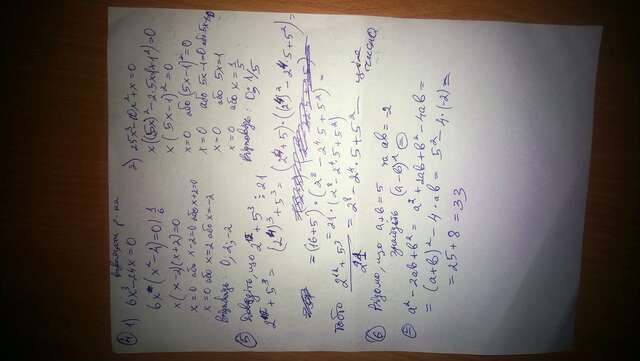 4) 1) 6x³-24x=0
6x(x²-4)=0 | 1/6
x(x-2)(x+2)=0
x=0 або x-2=0 або x+2=0
x=0 або x=2 або x=-2
Відповідь: 0, 2, -2
2) 25x³-10x²+x=0
x((5x)²-2·5x·1+1²)=0
x(5x-1)²=0
x=0 або (5x-1)²=0
x=0 або 5x-1=0
x=0 або 5x=1
x=0 або x=1/5
Відповідь: 0; 1/5
5) Доведіть, що 2¹²+5³ ⋮ 21
2¹²+5³ = (2⁴)³+5³ = (2⁴+5)·((2⁴)²-2⁴·5+5²)=
= (16+5)·(2⁸-2⁴·5+5²)=
= 21·(2⁸-2⁴·5+5²)
Тобто (2¹²+5³)/21 = 2⁸-2⁴·5+5² — ціле число
6) Відомо, що a+b=5 та ab=-2
Знайдіть (a-b)² =
= a²-2ab+b² = a²+2ab+b²-4ab=
= (a+b)²-4·ab = 5²-4·(-2)=
= 25+8=33